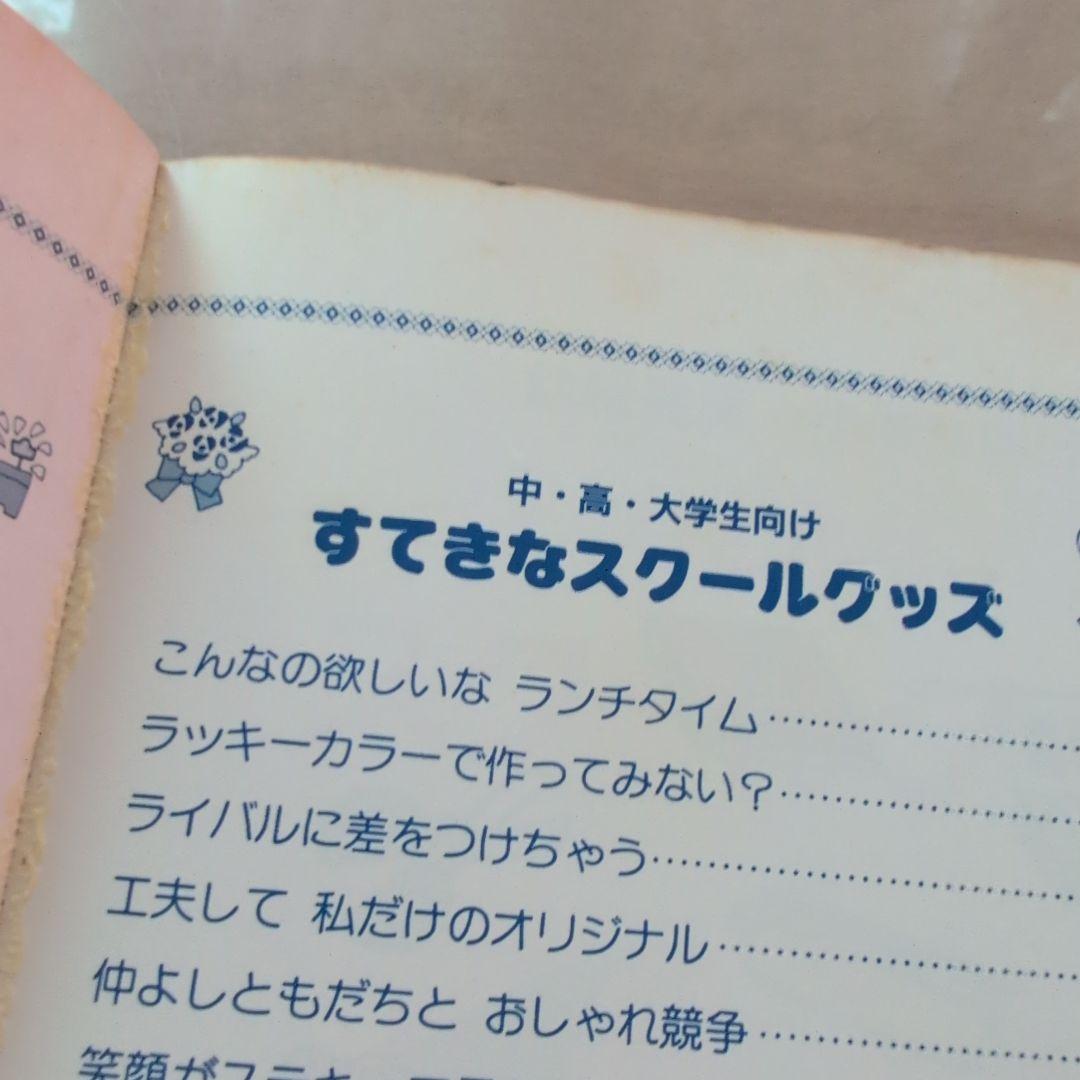 中・高・大学生向け
すてきなスクールグッズ
こんなの欲しいな ランチタイム
ラッキーカラーで作ってみない?
ライバルに差をつけちゃう
工夫して 私だけのオリジナル
仲よしともだちと おしゃれ競争
笑顔がステキ